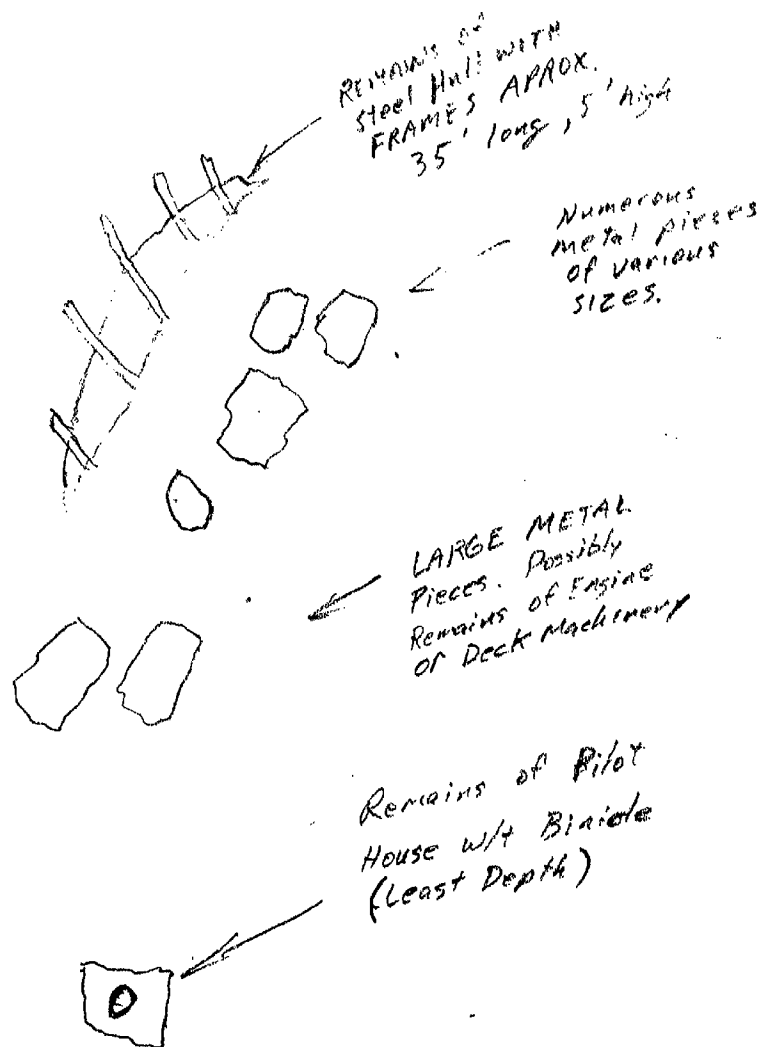 REMAINS of
Steel Hull WITH
FRAMES APROX.
35' long, 5' high
Numerous
metal pieces
of various
SIZES.
LARGE METAL
Pieces. Possibly
Remains of Engine
or Deck Machinery
Remains of Pilot
House w/t Binicle
(Least Depth)